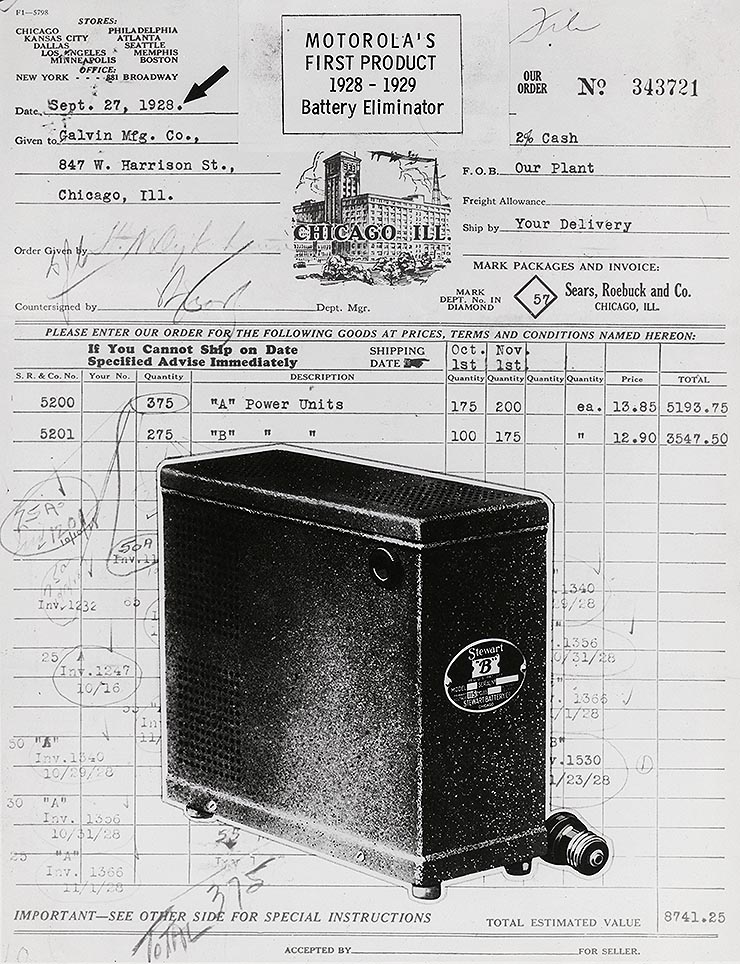 F1-5798
STORES:
CHICAGO PHILADELPHIA
KANSAS CITY ATLANTA
DALLAS SEATTLE
LOS ANGELES MEMPHIS
MINNEAPOLIS BOSTON
OFFICE:
NEW YORK - - - 881 BROADWAY
Date Sept. 27, 1928.
Given to Galvin Mfg. Co.,
847 W. Harrison St.,
Chicago, Ill.
Order Given by
Countersigned by Dept. Mgr.
MOTOROLA'S
FIRST PRODUCT
1928 - 1929
Battery Eliminator
CHICAGO ILL.
File
OUR ORDER No 343721
2% Cash
F.O.B. Our Plant
Freight Allowance
Ship by Your Delivery
MARK PACKAGES AND INVOICE:
MARK DEPT. NO. IN DIAMOND 57 Sears, Roebuck and Co.
CHICAGO, ILL.
PLEASE ENTER OUR ORDER FOR THE FOLLOWING GOODS AT PRICES, TERMS AND CONDITIONS NAMED HEREON:
If You Cannot Ship on Date
Specified Advise Immediately
SHIPPING DATE Oct. 1st Nov. 1st.
S. R. & Co. No. Your No. Quantity DESCRIPTION Quantity Quantity Quantity Quantity Price TOTAL
5200 375 "A" Power Units 175 200 ea. 13.85 5193.75
5201 275 "B" " " 100 175 " 12.90 3547.50
50A
Inv.1232
25 A
Inv.1247
10/16
50 "A"
Inv.1340
10/29/28
30 "A"
Inv. 1356
10/31/28
25 "A"
Inv. 1366
11/1/28
1340
9/28
.1356
0/31/28
. 1366
1/1/28
B"
v.1530
1/23/28
Stewart
"B"
MODEL
STEWART BATTERY CO.
CHICAGO
55
TOTAL 375
IMPORTANT—SEE OTHER SIDE FOR SPECIAL INSTRUCTIONS
TOTAL ESTIMATED VALUE 8741.25
ACCEPTED BY FOR SELLER.